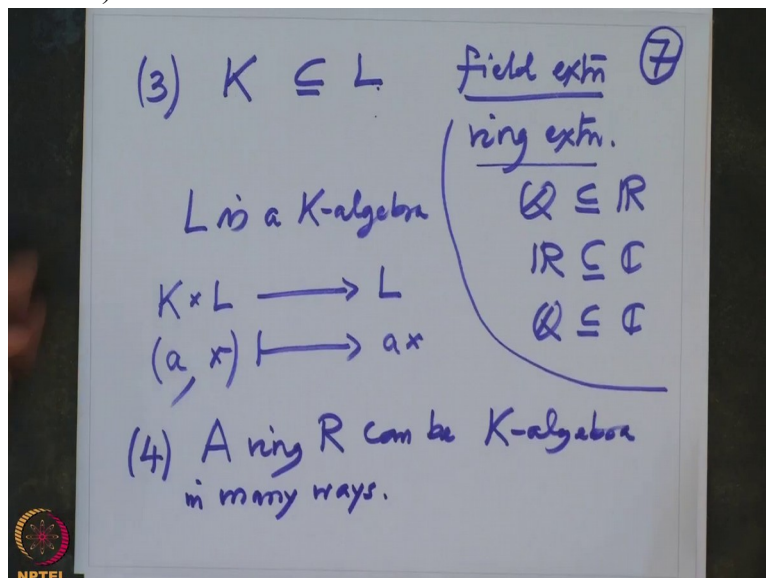 (3) K ⊆ L field extn 7
ring extn.
L is a K-algebra
ℚ ⊆ ℝ
ℝ ⊆ ℂ
ℚ ⊆ ℂ
K × L ⟶ L
(a, x) ⟼ ax
(4) A ring R can be K-algebra
in many ways.
NPTEL